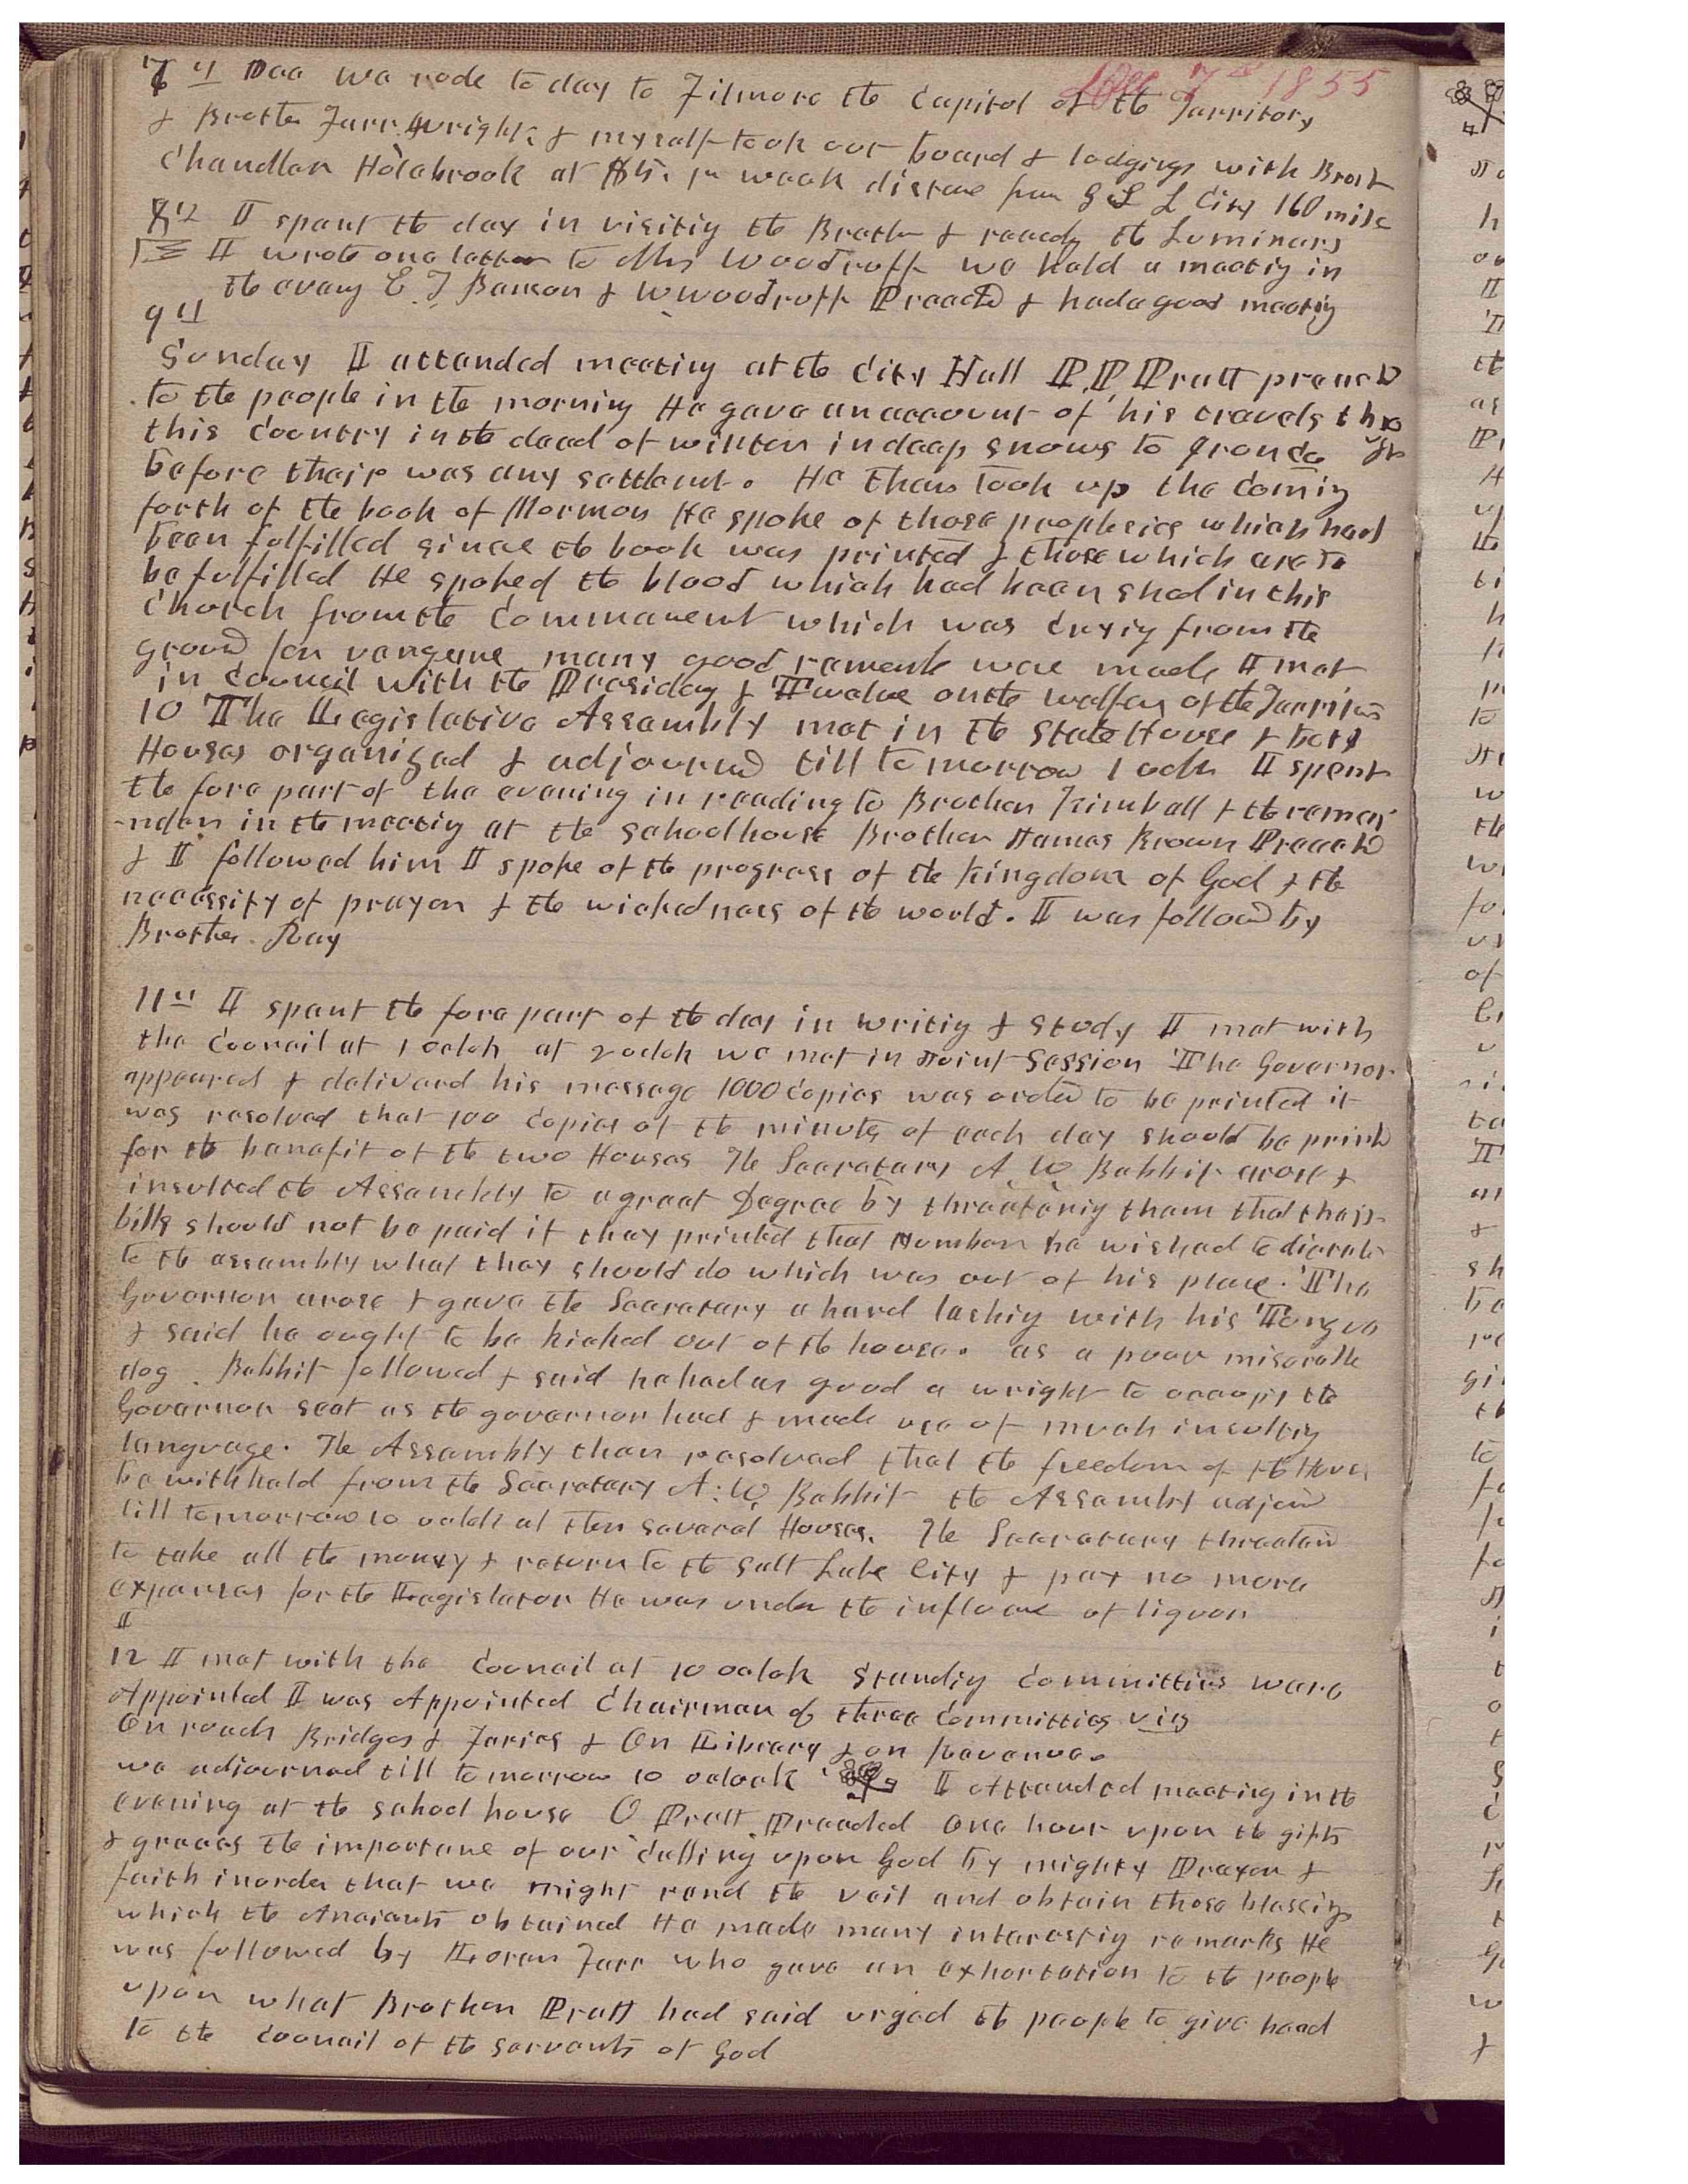 Dec 7th 1855
7th Dec we rode to day to Filmore the Capitol of the Territory
& Brother Farr Wright & myself took our board & lodgings with Brothr
Chandler Holabrook at $5. pr week distance from G S L City 160 mile
8th I spent the day in visiting the Brothr & reading the Luminary
I wrote one letter to Mrs Woodruff we held a meetig in
the eveng E T Benson & W Woodruff Preachd & had a good meetig
9th
Sunday I attended meeting at the City Hall P. P. Pratt preachd
to the people in the morning He gave an account of his travels thro
this Country in the dead of winter in deep snows to
before their was any settlemt. He then took up the Comig
forth of the book of Mormon He spoke of those prophesies which had
been fulfilled since the book was printed & those which are to
be fulfilled He spoked the blood which had been shed in this
Church from the Commencment which was cryig from the
ground for vengence many good remarks were made I met
in Council with the Presidency & Twelve on the welfare of the Territory
10 The Legislative Assembly met in the State House & both
Houses organized & adjournd till tomorrow 1 oclk I spent
the fore part of the evening in reading to Brother Kimball & the remai
-nder in the meetig at the school house Brother James Brown Preachd
& I followed him I spoke of the progress of the kingdom of God & the
necessity of prayer & the wickedness of the world. I was followd by
Brother Ray
11th I spent the fore part of the day in writig & Study I met with
the Council at 1 oclok at 2 oclok we met in Joint Session The Governor
appeared & deliverd his message 1000 Copies was orderd to be printed it
was resolved that 100 Copies of the minutes of each day should be printd
for the benefit of the two Houses The Secretary A. W. Babbit arose &
insulted the Assembly to a great Degree by threatenig them that their
bills should not be paid if they printed that Number he wished to dictate
to the assembly what they should do which was out of his place. The
Governor arose & gave the Secretary a hard lashig with his Tongue
& said he ought to be kicked out of the house. as a poor miserable
dog. Babbit followed & said he had as good a wright to occupy the
Governor seat as the governor had & made use of much insultig
language. The Assembly then resolved that the freedom of the House
be withheld from the Secretary A. W. Babbit the Assembly adjornd
till tomorrow 10 oclok at their several Houses. The Secretary threatend
to take all the money & return to the Salt Lake City & pay no more
expenses for the Legislator He was under the influence of liquor
II
12 I met with the Council at 10 oclok Standig Committies were
Appointed I was Appointed Chairman of three Committies viz
On roads Bridges & Faries & On Library & on Revenue.
we adjourned till tomorrow 10 oclock I attended meeting in the
evening at the school house O Pratt Preached one hour upon the gifts
& graces the importance of our Calling upon God by mighty Prayer &
faith in order that we might rend the veil and obtain those blessigs
which the Anciants obtained He made many interestig remarks He
was followed by Loren Farr who gave an exhortation to the people
upon what Brother Pratt had said urged the people to give heed
to the Council of the servants of God